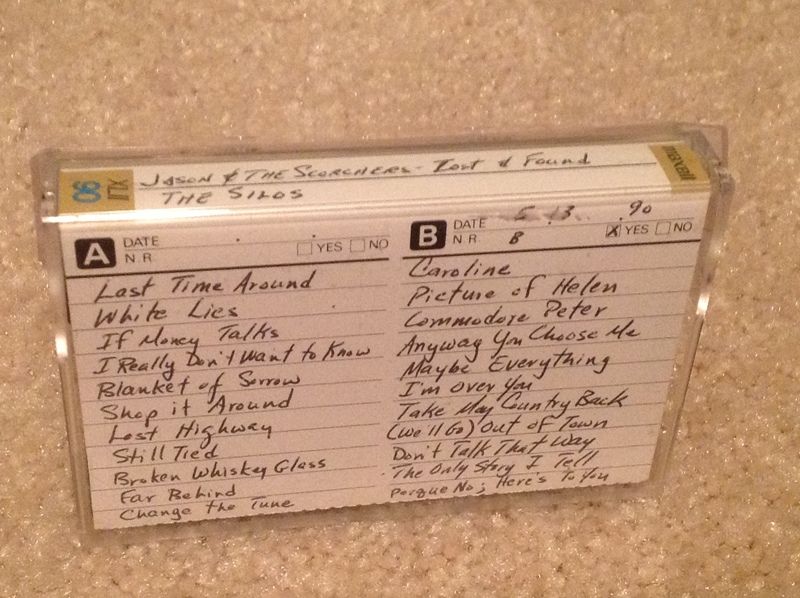 90 XLII JASON & THE SCORCHERS - Lost & Found maxell
THE SILOS
A DATE
N.R. YES NO
Last Time Around
White Lies
If Money Talks
I Really Don't Want to Know
Blanket of Sorrow
Shop it Around
Lost Highway
Still Tied
Broken Whiskey Glass
Far Behind
Change the Tune
B DATE 5 . 13 . .90
N.R. B X YES NO
Caroline
Picture of Helen
Commodore Peter
Anyway You Choose Me
Maybe Everything
I'm over you
Take My Country Back
(We'll Go) Out of Town
Don't Talk That Way
The Only Story I Tell
Porque No; Here's To You